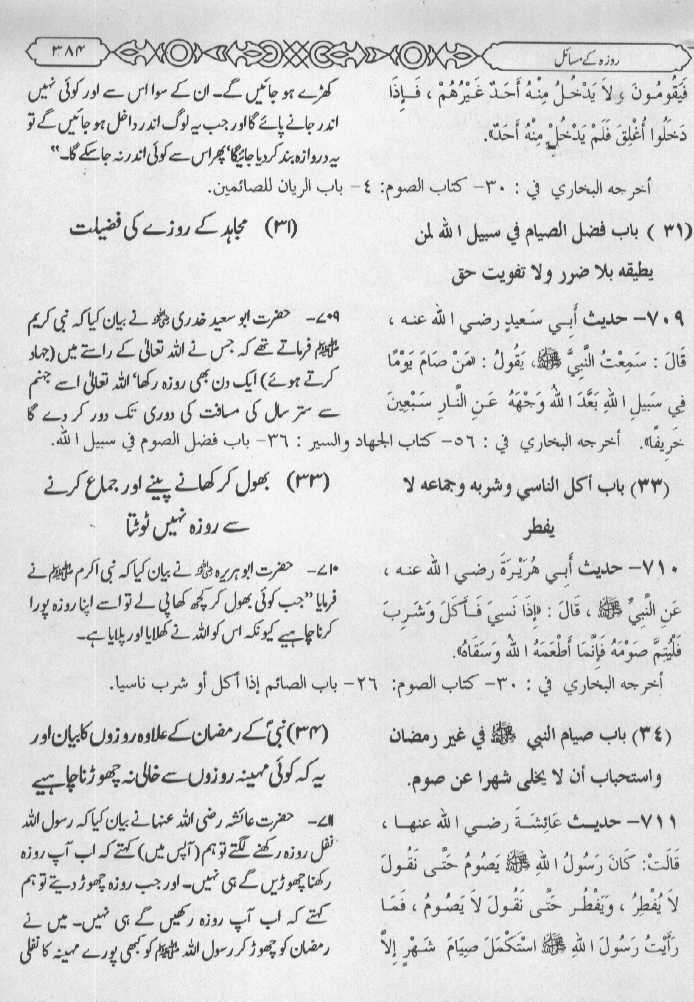 روزہ کے مسائل
۳۸۴
فَيَقُومُونَ، لاَ يَدْخُلُ مِنْهُ أَحَدٌ غَيْرُهُمْ، فَإِذَا
دَخَلُوا أُغْلِقَ فَلَمْ يَدْخُلْ مِنْهُ أَحَدٌ».
کھڑے ہو جائیں گے۔ ان کے سوا اس سے اور کوئی نہیں
اندر جانے پائے گا اور جب یہ لوگ اندر داخل ہو جائیں گے تو
یہ دروازہ بند کر دیا جائیگا' پھر اس سے کوئی اندر نہ جا سکے گا۔"
أخرجه البخاري في : ٣٠- كتاب الصوم: ٤- باب الريان للصائمين.
(٣١) باب فضل الصيام في سبيل الله لمن
يطيقه بلا ضرر ولا تفويت حق
(۳۱) مجاہد کے روزے کی فضیلت
٧٠٩- حديث أَبِي سَعِيدٍ رضي الله عنه،
قَالَ: سَمِعْتُ النَّبِيَّ ﷺ، يَقُولُ: «مَنْ صَامَ يَوْمًا
فِي سَبِيلِ اللهِ بَعَّدَ اللهُ وَجْهَهُ عَنِ النَّارِ سَبْعِينَ
خَرِيفًا».
۷۰۹- حضرت ابو سعید خدری ؓ نے بیان کیا کہ نبی کریم
ﷺ فرماتے تھے کہ جس نے اللہ تعالیٰ کے راستے میں (جہاد
کرتے ہوئے) ایک دن بھی روزہ رکھا' اللہ تعالیٰ اسے جہنم
سے ستر سال کی مسافت کی دوری تک دور کر دے گا
أخرجه البخاري في : ٥٦- كتاب الجهاد والسير : ٣٦- باب فضل الصوم في سبيل الله.
(٣٣) باب أكل الناسي وشربه وجماعه لا
يفطر
(۳۳) بھول کر کھانے پینے اور جماع کرنے
سے روزہ نہیں ٹوٹتا
٧١٠- حديث أَبِي هُرَيْرَةَ رضي الله عنه،
عَنِ النَّبِيِّ ﷺ، قَالَ: «إِذَا نَسِيَ فَأَكَلَ وَشَرِبَ
فَلْيُتِمَّ صَوْمَهُ فَإِنَّمَا أَطْعَمَهُ اللهُ وَسَقَاهُ».
۷۱۰- حضرت ابو ہریرہ ؓ نے بیان کیا کہ نبی اکرم ﷺ نے
فرمایا "جب کوئی بھول کر کچھ کھا پی لے تو اسے اپنا روزہ پورا
کرنا چاہیے کیونکہ اس کو اللہ نے کھلایا اور پلایا ہے۔
أخرجه البخاري في : ٣٠- كتاب الصوم: ٢٦- باب الصائم إذا أكل أو شرب ناسيا.
(٣٤) باب صيام النبي ﷺ في غير رمضان
واستحباب أن لا يخلى شهرا عن صوم.
(۳۴) نبیؐ کے رمضان کے علاوہ روزوں کا بیان اور
یہ کہ کوئی مہینہ روزوں سے خالی نہ چھوڑنا چاہیے
٧١١- حديث عَائِشَةَ رضي الله عنها،
قَالَتْ: كَانَ رَسُولُ اللهِ ﷺ يَصُومُ حَتَّى نَقُولَ
لاَ يُفْطِرُ، وَيُفْطِرُ حَتَّى نَقُولَ لاَ يَصُومُ، فَمَا
رَأَيْتُ رَسُولَ اللهِ ﷺ اسْتَكْمَلَ صِيَامَ شَهْرٍ إِلاَّ
۷۱۱- حضرت عائشہ رضی اللہ عنہا نے بیان کیا کہ رسول اللہ
نفل روزہ رکھنے لگتے تو ہم (آپس میں) کہتے کہ اب آپ روزہ
رکھنا چھوڑیں گے ہی نہیں۔ اور جب روزہ چھوڑ دیتے تو ہم
کہتے کہ اب آپ روزہ رکھیں گے ہی نہیں۔ میں نے
رمضان کو چھوڑ کر رسول اللہ ﷺ کو کبھی پورے مہینہ کا نفلی